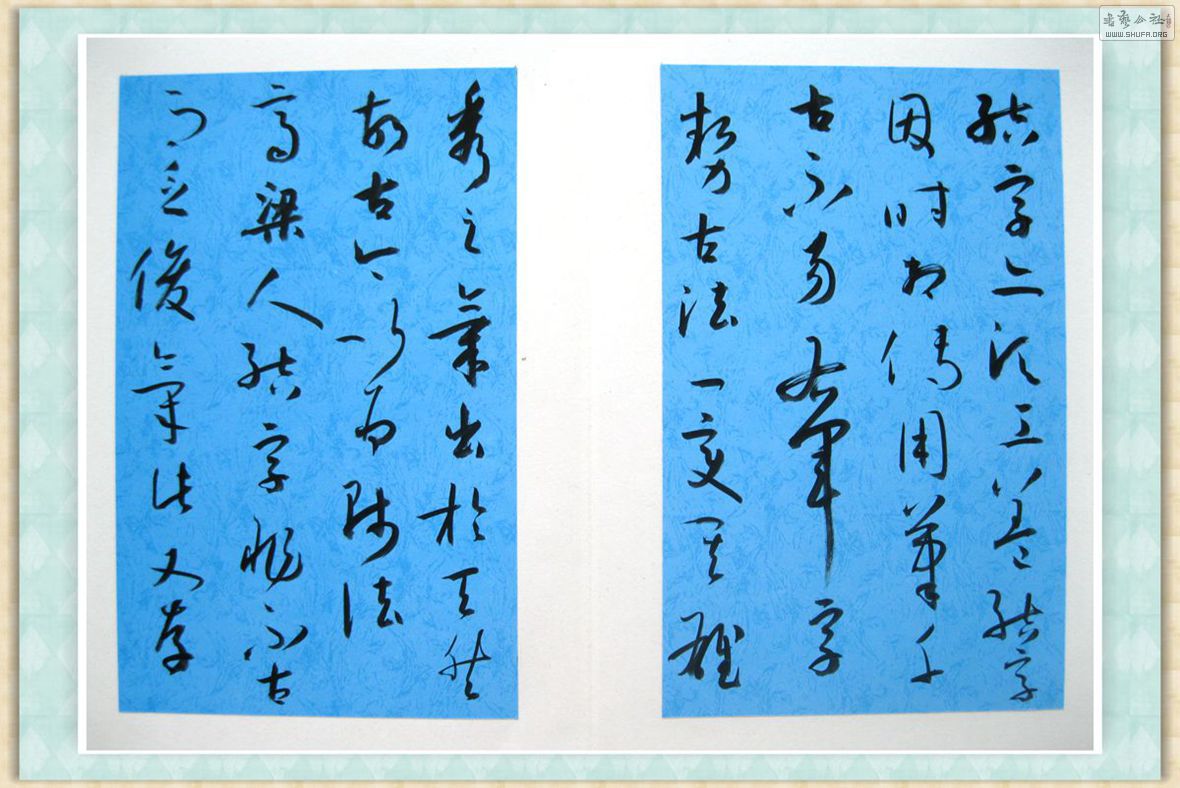 結字亦須工蓋結字
因時相傳用筆千
古不易右軍字
勢古法一變其雄
秀之氣出於天然
故古今以為師法
齊梁人結字非不古
而乏俊氣此又存
WWW.SHUFA.ORG